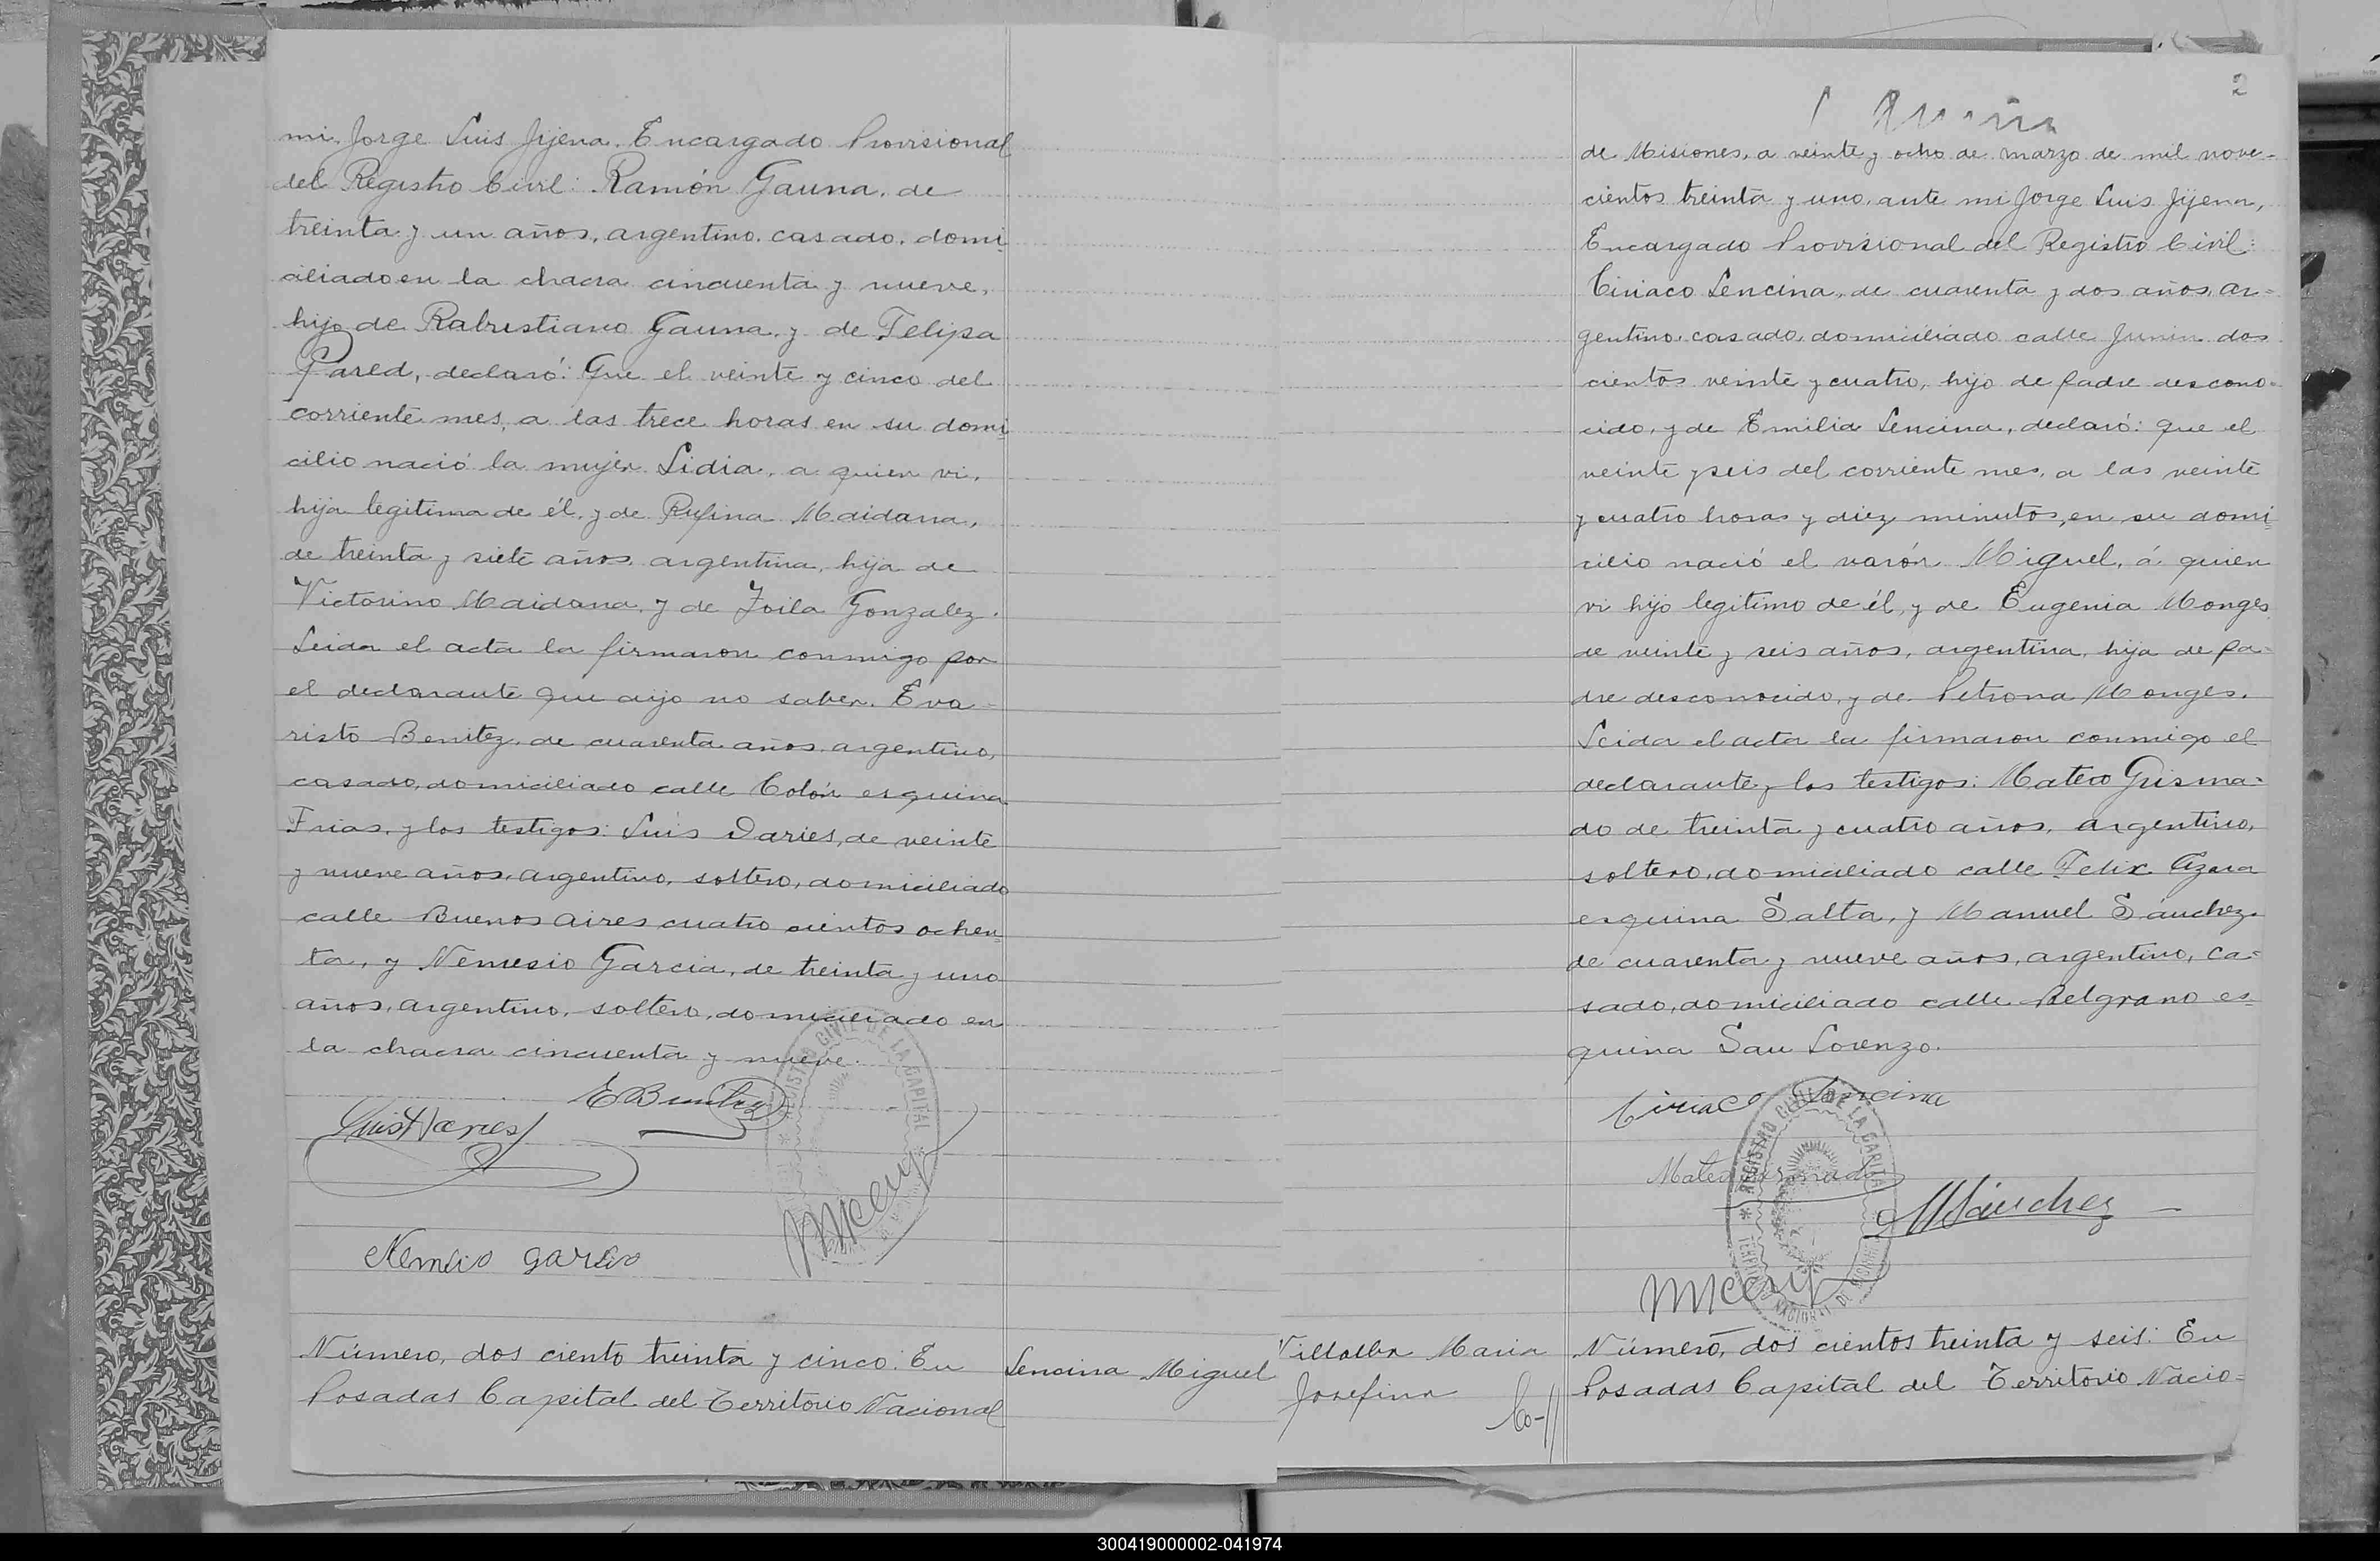 mi, Jorge Luis Jijena. Encargado Provisional
del Registro Civil: Ramón Gauna, de
treinta y un años, argentino, casado, domi-
ciliado en la chacra cincuenta y nueve,
hijo de Gauna, y de Felipa
Pared, declaró: Que el veinte y cinco del
corriente mes, a las trece horas en su domi-
cilio nació la mujer Lidia, a quien vi,
hija legitima de él, y de Rufina Maidana,
de treinta y siete años, argentina, hija de
Victorino Maidana, y de Zoila Gonzalez.
Leida el acta la firmaron conmigo por
el declarante que dijo no saber. Eva-
risto Benitez, de cuarenta años, argentino,
casado, domiciliado calle Colón esquina
Frias, y los testigos: Luis Daries, de veinte
y nueve años, argentino, soltero, domiciliado
calle Buenos Aires cuatro cientos ochen-
ta, y Nemesio Garcia, de treinta y uno
años, argentino, soltero, domiciliado en
la chacra cincuenta y nueve.
EBenitez
Luis Daries
REGISTRO CIVIL DE LA CAPITAL
Nemesio garcia
Número, dos ciento treinta y cinco: En
Posadas Capital del Territorio Nacional
Lencina Miguel
2
de Misiones, a veinte y ocho de marzo de mil nove-
cientos treinta y uno, ante mi Jorge Luis Jijena,
Encargado Provisional del Registro Civil:
Ciriaco Lencina, de cuarenta y dos años, ar-
gentino, casado, domiciliado calle Junin dos
cientos veinte y cuatro, hijo de padre descono-
cido, y de Emilia Lencina, declaró: que el
veinte y seis del corriente mes, a las veinte
y cuatro horas y diez minutos, en su domi-
cilio nació el varón Miguel, á quien
vi hijo legitimo de él, y de Eugenia Monges
de veinte y seis años, argentina, hija de pa-
dre desconocido, y de Petrona Monges.
Leida el acta la firmaron conmigo el
declarante y los testigos: Mateo Grisma-
do de treinta y cuatro años, argentino,
soltero, domiciliado calle Felix Azara
esquina Salta, y Manuel Sánchez.
de cuarenta y nueve años, argentino, ca-
sado, domiciliado calle Belgrano es-
quina San Lorenzo.
Ciriaco Lencina
Mateo Grismado
MSánchez
REGISTRO CIVIL DE LA CAPITAL
TERRITORIO NACIONAL DE MISIONES
Villalba Maria
Josefina
Número, dos cientos treinta y seis: En
Posadas Capital del Territorio Nacio-
300419000002-041974